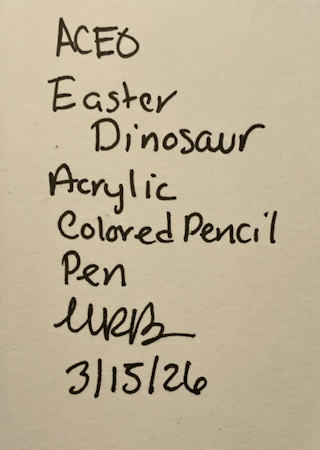 ACEO
Easter
Dinosaur
Acrylic
Colored Pencil
Pen
MRB
3/15/26